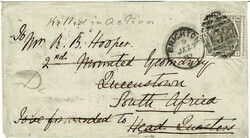 Killed in action
To Mr. R. B. Hooper.
2nd Mounted Yeomanry
Queenstown
South Africa
To be forwarded to Head Quarters